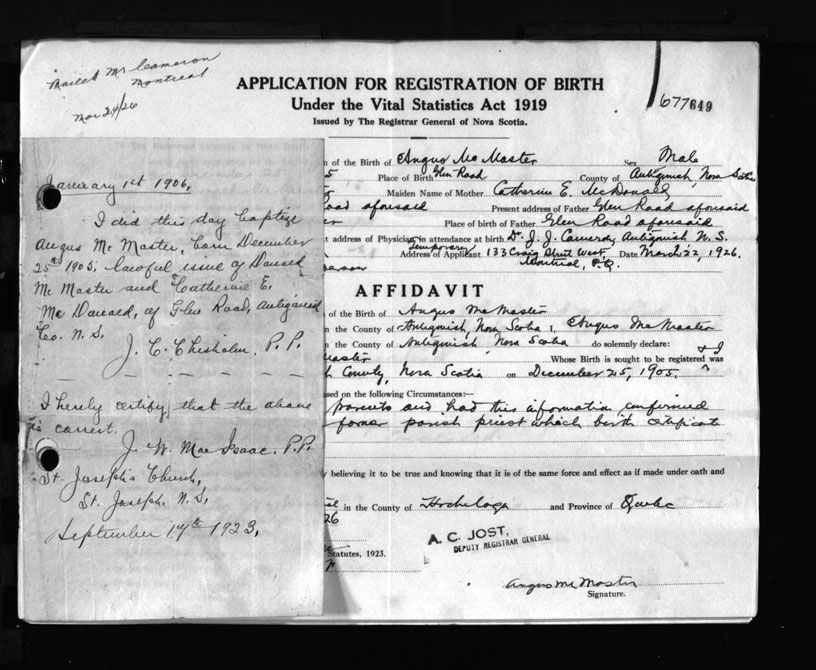 Mailed Mr Cameron
Montreal
Mar 24/26
APPLICATION FOR REGISTRATION OF BIRTH
Under the Vital Statistics Act 1919
Issued by The Registrar General of Nova Scotia.
677649
January 1st 1906,
I did this day baptize
Angus Mc Master, born December
25th 1905, lawful issue of Donald
Mc Master and Catherine E.
Mc Donald, of Glen Road, Antigonish
Co. N. S.
J. C. Chisholm, P. P.
I hereby certify that the above
is correct.
J. W. MacIsaac, P.P.
St. Joseph's Church,
St. Joseph, N. S.
September 17th 1923,
n of the Birth of Angus McMaster Sex Male
5 Place of Birth Glen Road County of Antigonish, Nova Scotia
Maiden Name of Mother Catherine E. McDonald
oad aforesaid Present address of Father Glen Road aforesaid
er Place of birth of Father Glen Road aforesaid
t address of Physician in attendance at birth Dr. J. J. Cameron, Antigonish N. S.
Temporary
Address of Applicant 133 Craig Street West, Date March 22, 1926.
Montreal, P.Q.
AFFIDAVIT
n of the Birth of Angus McMaster
n the County of Antigonish, Nova Scotia, Angus McMaster
n the County of Antigonish, Nova Scotia do solemnly declare:
Master & I Whose Birth is sought to be registered was
h County, Nova Scotia on December 25, 1905.
sed on the following Circumstances:—
parents and had this information confirmed
former parish priest which birth certificate
y believing it to be true and knowing that it is of the same force and effect as if made under oath and
in the County of Hochelaga and Province of Quebec
26
A. C. JOST,
DEPUTY REGISTRAR GENERAL
Statutes, 1923.
Angus McMaster
Signature.